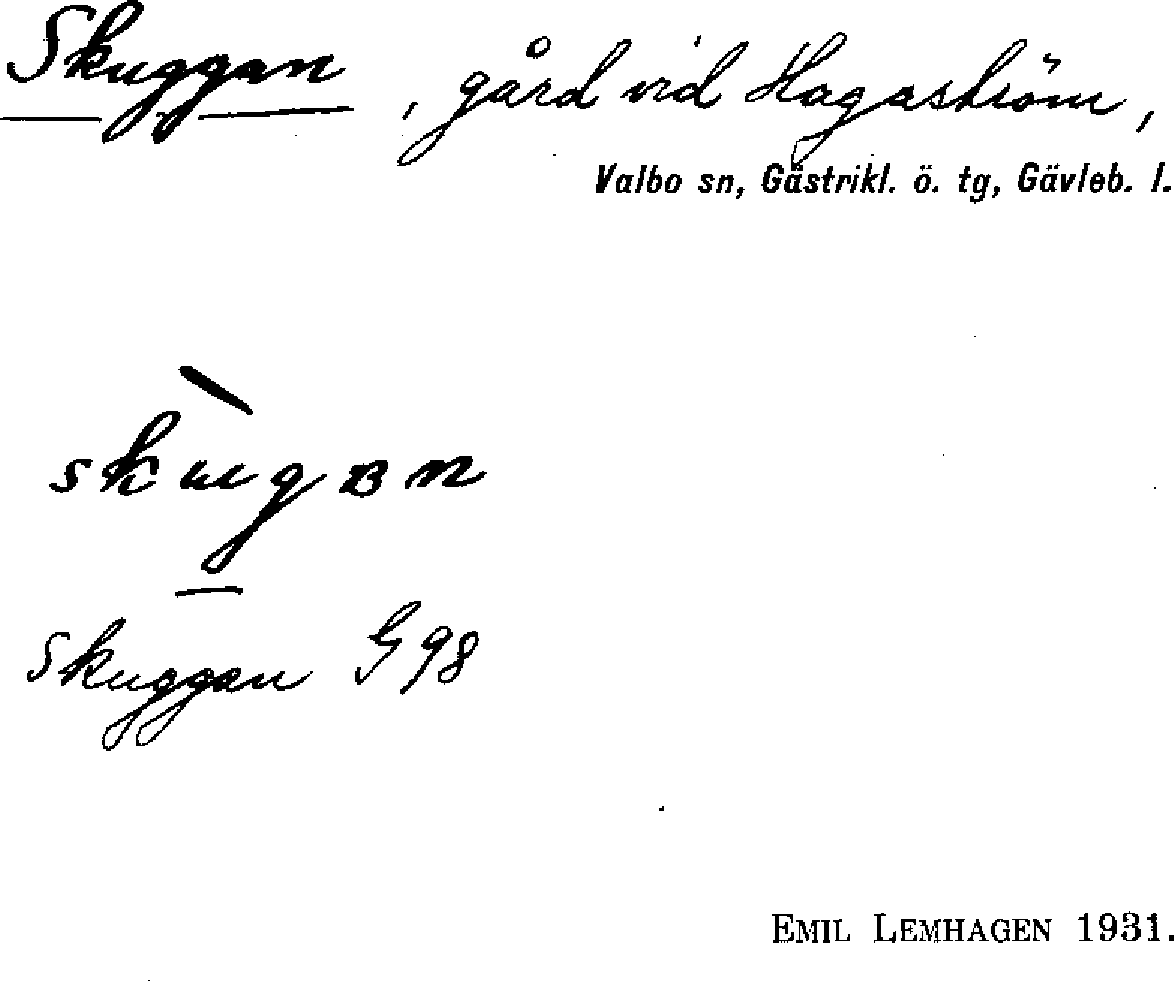 Skuggan, gård vid Hagaström,
Valbo sn, Gästrikl. ö. tg, Gävleb. l.
Skuggan G 98
EMIL LEMHAGEN 1931.